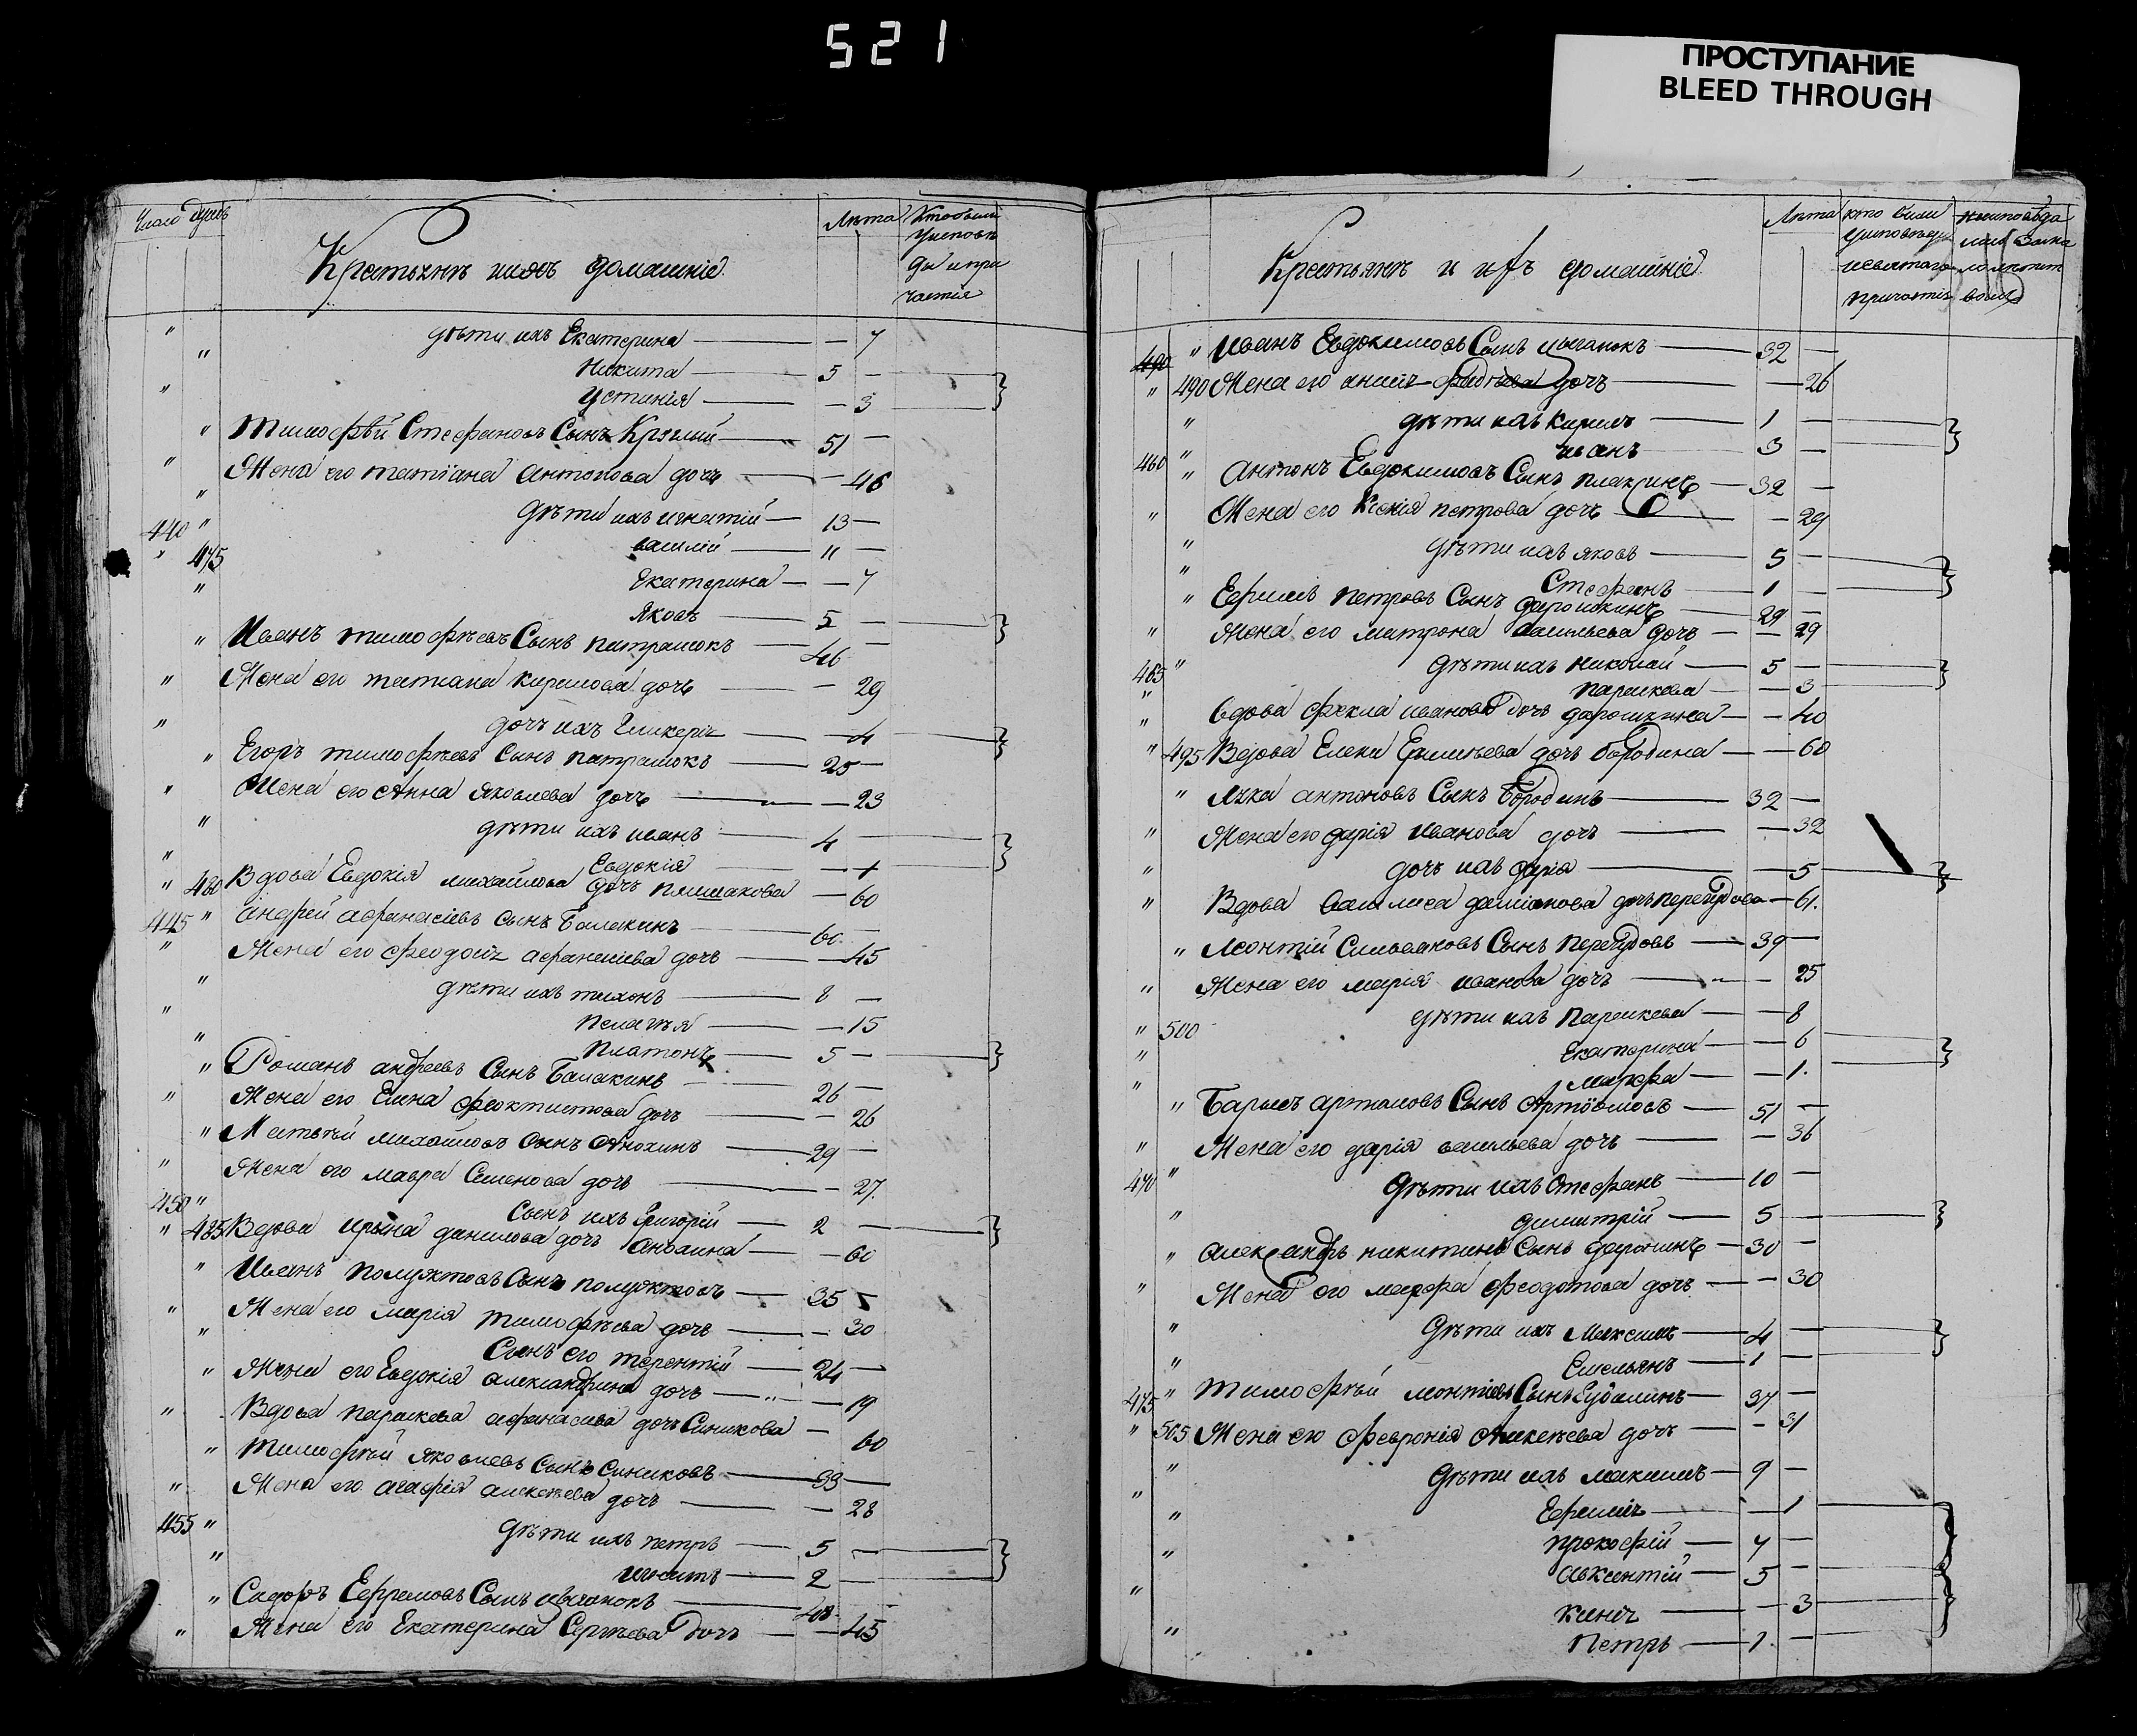 521
ПРОСТУПАНИЕ
BLEED THROUGH
Число душъ
Крестьянъ и ихъ домашніе
Лѣта
дѣти ихъ Екатерина — 7
Никита 5 —
Устинія — 3
Тимофѣй Стефановъ Сынъ 51 —
Жена его татіана антонова дочь — 46
дѣти ихъ игнатій 13 —
440
василій 11 —
475
Екатерина — 7
Яковъ 5 —
Иванъ тимофѣевъ Сынъ патрашокъ 46 —
Жена его татиана кирилова дочь — 29
дочь ихъ — 4
Егоръ тимофѣевъ Сынъ патрашокъ 25 —
Жена его Анна Яковлева дочь — 23
дѣти ихъ иванъ 4 —
Евдокія — 1
480 Вдова Евдокія михайлова дочь — 60
445 андрей афанасіевъ сынъ Балакинъ 60 —
Жена его афанасиева дочь — 45
дѣти ихъ тихонъ 8 —
пелагья — 15
платонъ 5 —
Романъ андреевъ Сынъ Балакинъ 26 —
Жена его Елена феоктистова дочь — 26
Матвѣй михайловъ сынъ Анохинъ 29 —
Жена его мавра Семенова дочь — 27
450
Сынъ ихъ Григорій 2 —
485 Вдова ирина данилова дочь — 60
Иванъ полуэктовъ Сынъ полуэктовъ 35 —
Жена его марія тимофѣева дочь — 30
Сынъ его терентій 24 —
Жена его Евдокія александрина дочь — 19
Вдова параскева афанасиева дочь Синикова — 60
тимофѣй яковлевъ Сынъ Синиковъ 33 —
Жена его агафія алексѣева дочь — 28
455
дѣти ихъ петръ 5 —
игнатъ 2 —
Ефремовъ Сынъ цыганокъ 48 —
Жена его Екатерина Сергѣева дочь — 45
Крестьянъ и ихъ домашніе
Лѣта
кто были
у исповѣди
и святаго
причастія
490 Иванъ Евдокимовъ Сынъ цыганокъ 32 —
490 Жена его дочь — 26
дѣти ихъ Кирилъ 1 —
иванъ 3 —
460
антонъ Евдокимовъ Сынъ 32 —
Жена его Ксенія петрова дочь — 29
дѣти ихъ яковъ 5 —
Стефанъ 1 —
Ефимъ петровъ Сынъ дарошкинъ 29 —
Жена его матрона васильева дочь — 29
465
дѣти ихъ николай 5 —
параскева — 3
вдова фекла иванова дочь дарошкина — 40
495 Вдова Елена дочь бородина — 60
Лука антоновъ Сынъ Бородинъ 32 —
Жена его дарія иванова дочь — 32
дочь ихъ дарія — 5
Вдова василиса даміанова дочь — 61.
леонтій Сынъ 39 —
Жена его марія иванова дочь — 25
500
дѣти ихъ параскева — 8
Екатерина — 6
марфа — 1.
Барысъ артамовъ Сынъ 51 —
Жена его дарія васильева дочь — 36
470
дѣти ихъ Стефанъ 10 —
димитрій 5 —
александръ никитинъ Сынъ 30 —
Жена его марфа феодотова дочь — 30
дѣти ихъ Максимъ 4 —
Емельянъ 1 —
475 тимофѣй Сынъ 37 —
505 Жена его Февронія Алексѣева дочь — 31
дѣти ихъ максимъ 9 —
— 1
прокофій 7 —
авксентій 5 —
— 3
петръ 1 —